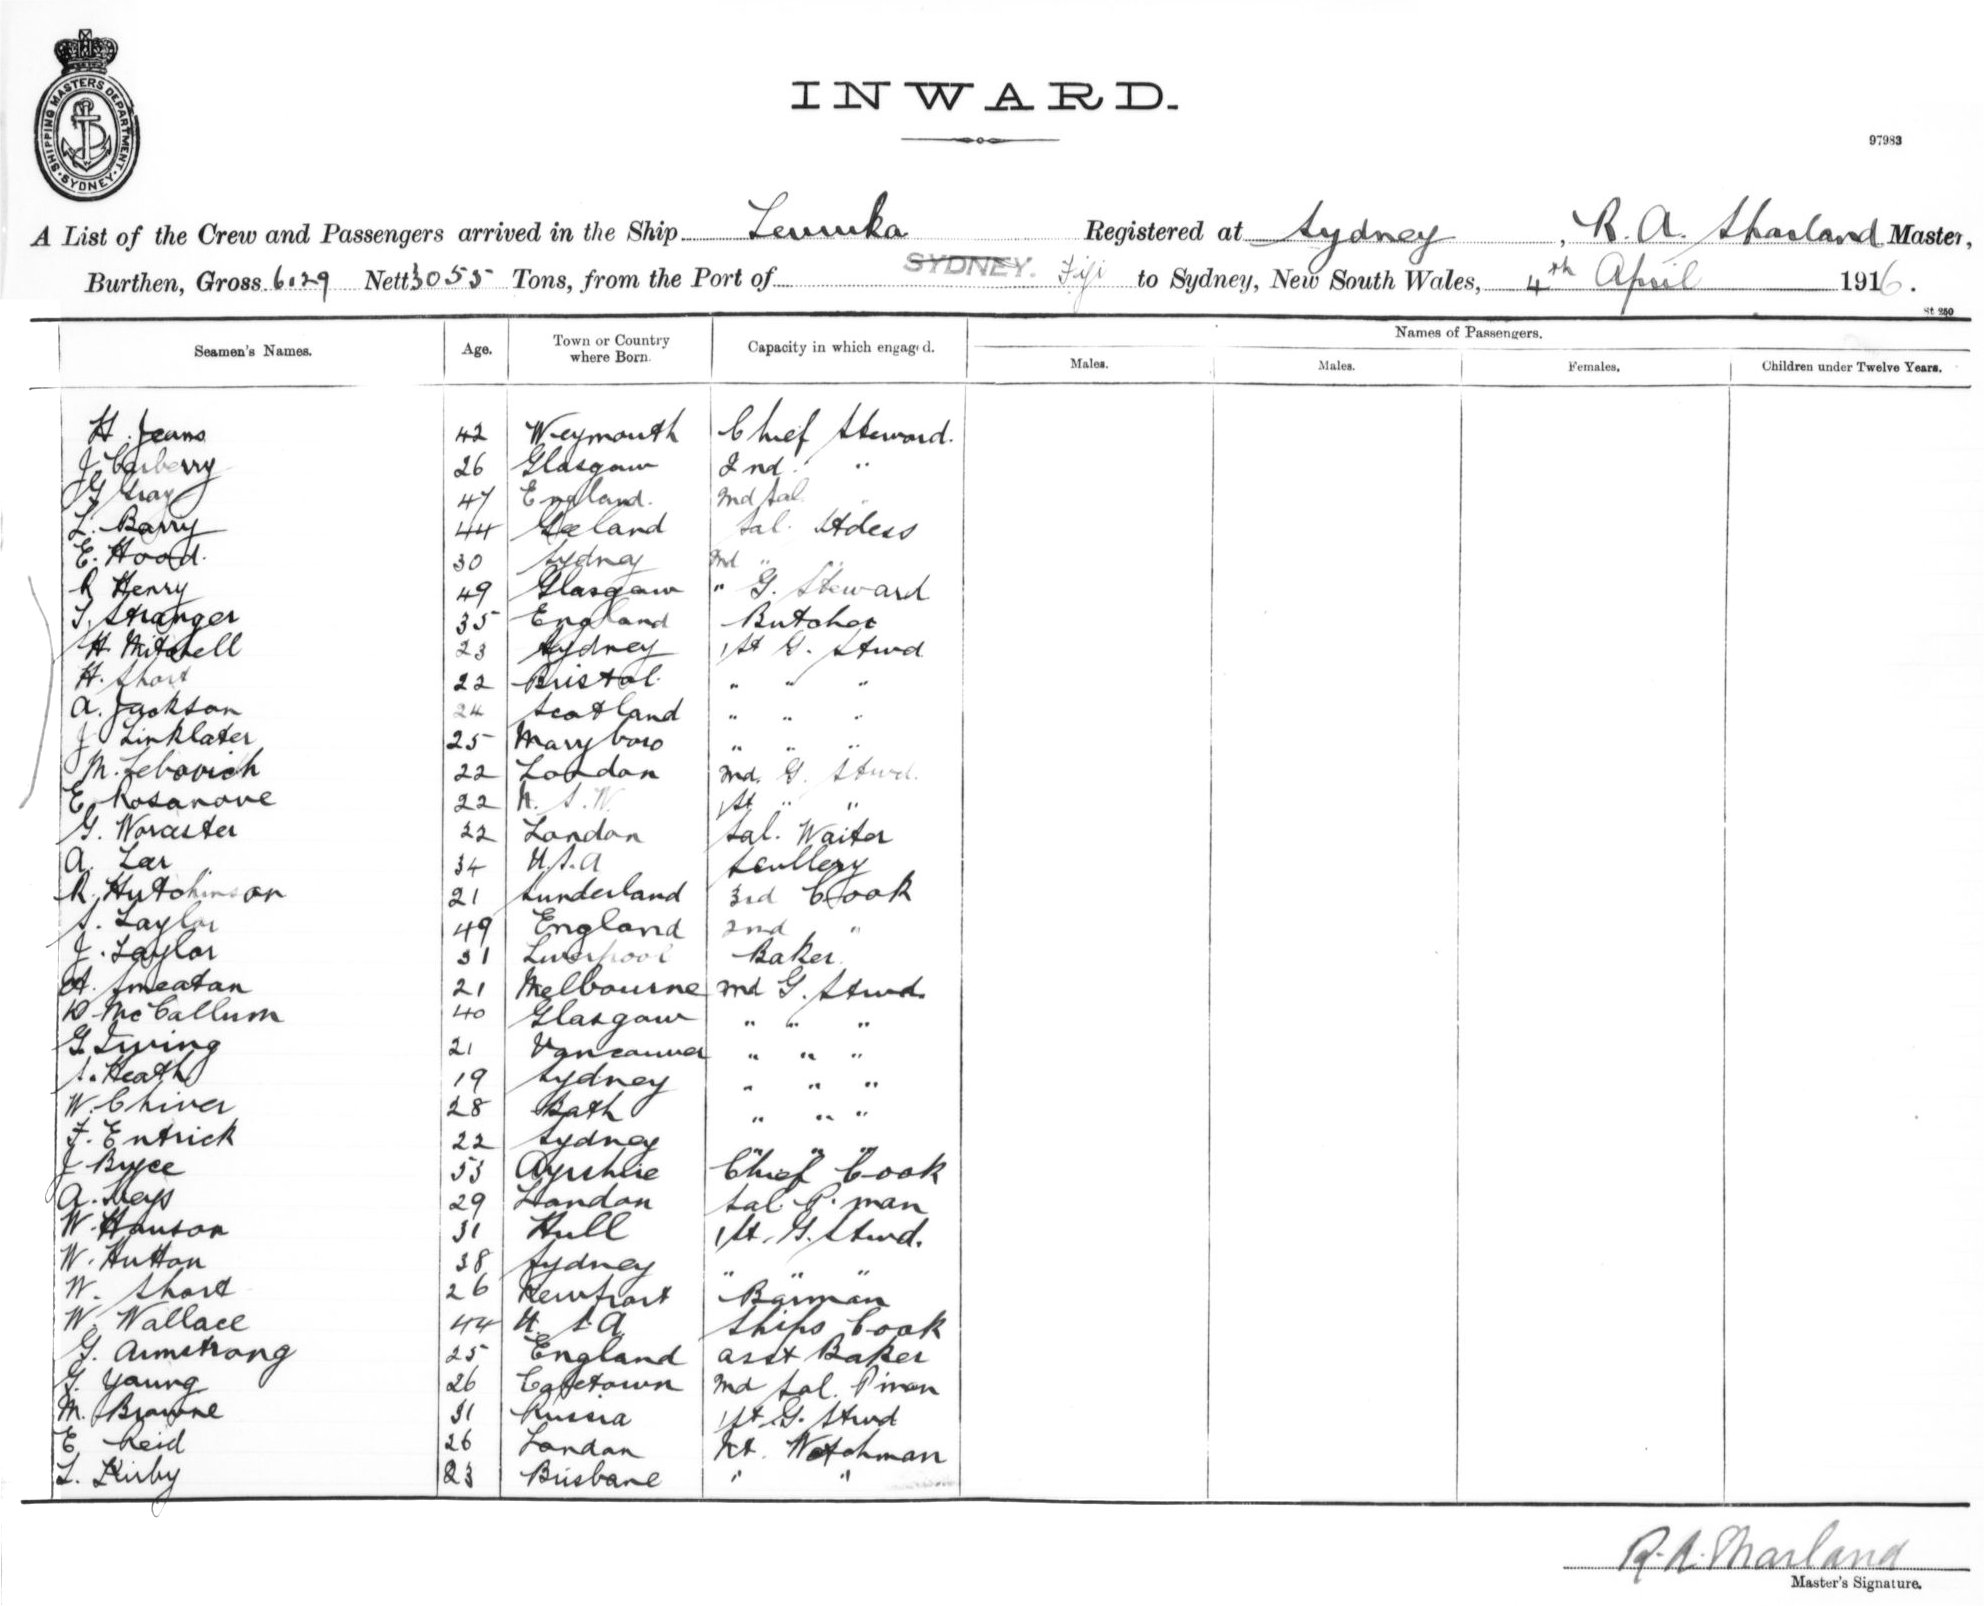 SHIPPING MASTERS DEPARTMENT. SYDNEY.
INWARD.
97983
A List of the Crew and Passengers arrived in the Ship Levuka Registered at Sydney, R. A. Sharland Master,
Burthen, Gross 6129 Nett 3055 Tons, from the Port of SYDNEY. Fiji to Sydney, New South Wales, 4th April 1916.
St 250
Seamen's Names. Age. Town or Country where Born. Capacity in which engaged. Names of Passengers.
Males. Males. Females. Children under Twelve Years.
H. Jeans 42 Weymouth Chief Steward.
J Carberry 26 Glasgow 2nd "
G Gray 47 England. 2nd Sal. "
L. Barry 44 Sal. Stdess
E. Hood. 30 Sydney 2nd " "
R Henry 49 Glasgow " G. Steward
T. Stranger 35 England Butcher
H. Mitchell 23 Sydney 1st G. Stwd
H. Short 22 Bristol. " " "
A. Jackson 24 Scotland " " "
J Linklater 25 Maryboro " " "
M. Lebovich 22 London 2nd G. Stwd.
E. Rosanove 22 N. S. W. 1st " "
G. Worcester 22 London Sal. Waiter
A. Lee 34 U.S.A Scullery
R. Hutchinson 21 Sunderland 3rd Cook
S. Taylor 49 England 2nd "
J. Taylor 31 Liverpool Baker.
A. Smeaton 21 Melbourne 2nd G. Stwd.
D McCallum 40 Glasgow " " "
G. Irving 21 Vancouver " " "
S. Heath 19 Sydney " " "
W. Chiver 28 Bath " " "
F. Entrick 22 Sydney " " "
J Bryce 53 Ayrshire Chief Cook
A. Keys 29 London Sal. P. man
W. Hanson 31 Hull 1st. G. Stwd.
W. Hutton 38 Sydney " " "
W. Short 26 Newport Barman
W. Wallace 44 U S A Ships Cook
G. Armstrong 25 England asst Baker
G. Young 26 Capetown 2nd Sal. P man
M. Browne 31 Russia 1st. G. Stwd
E. Reid 26 London Nt. Watchman
L. Kirby 23 Brisbane " "
R. A. Sharland
Master's Signature.